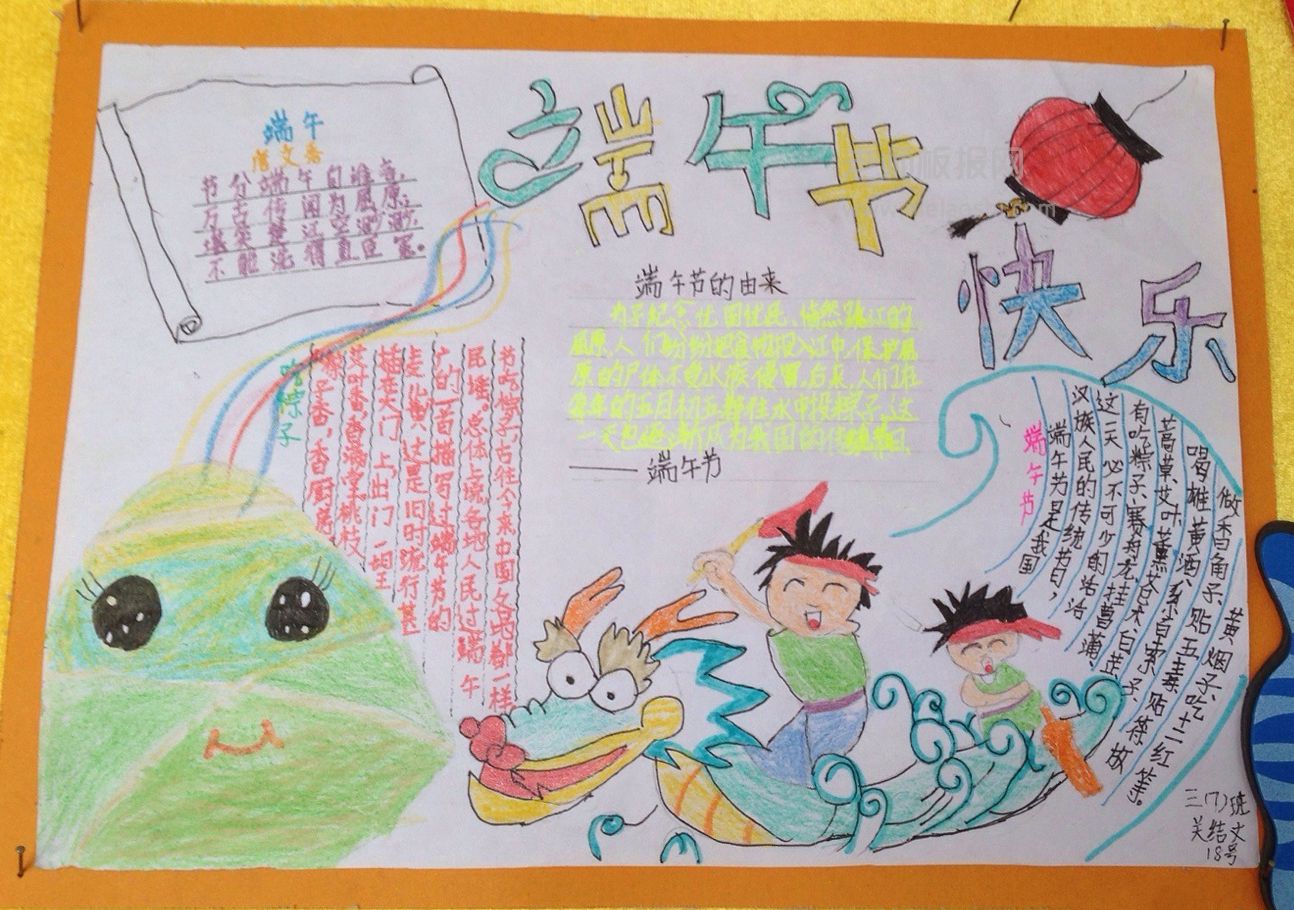 端午节
快乐
端午
唐 文秀
节分端午自谁言,
万古传闻为屈原;
堪笑楚江空渺渺,
不能洗得直臣冤。
端午节的由来
为了纪念忧国忧民、愤然跳江的
屈原,人们纷纷把食物投入江中,保护屈
原的尸体不受水族侵冒,后来,人们在
每年的五月初五都往水中投粽子,这
一天也逐渐成为我国的传统节日
——端午节
吃粽子
粽子香,香厨房
艾叶香,香满堂,桃枝
插在大门上,出门一望
麦儿黄,这是旧时流行甚
广的一首描写过端午节的
民谣。总体上说各地人民过端午
节吃粽子,古往今来中国各地都一样
端午节
端午节是我国
汉族人民的传统节日,
这一天必不可少的活活
有吃粽子,赛龙舟,挂菖蒲、
蒿草、艾叶,薰苍术、白芷,
喝雄黄酒,系百索子
做香角子、贴五毒、贴符,放
黄烟子、吃十二红等。
三(7)班
关结文
18号